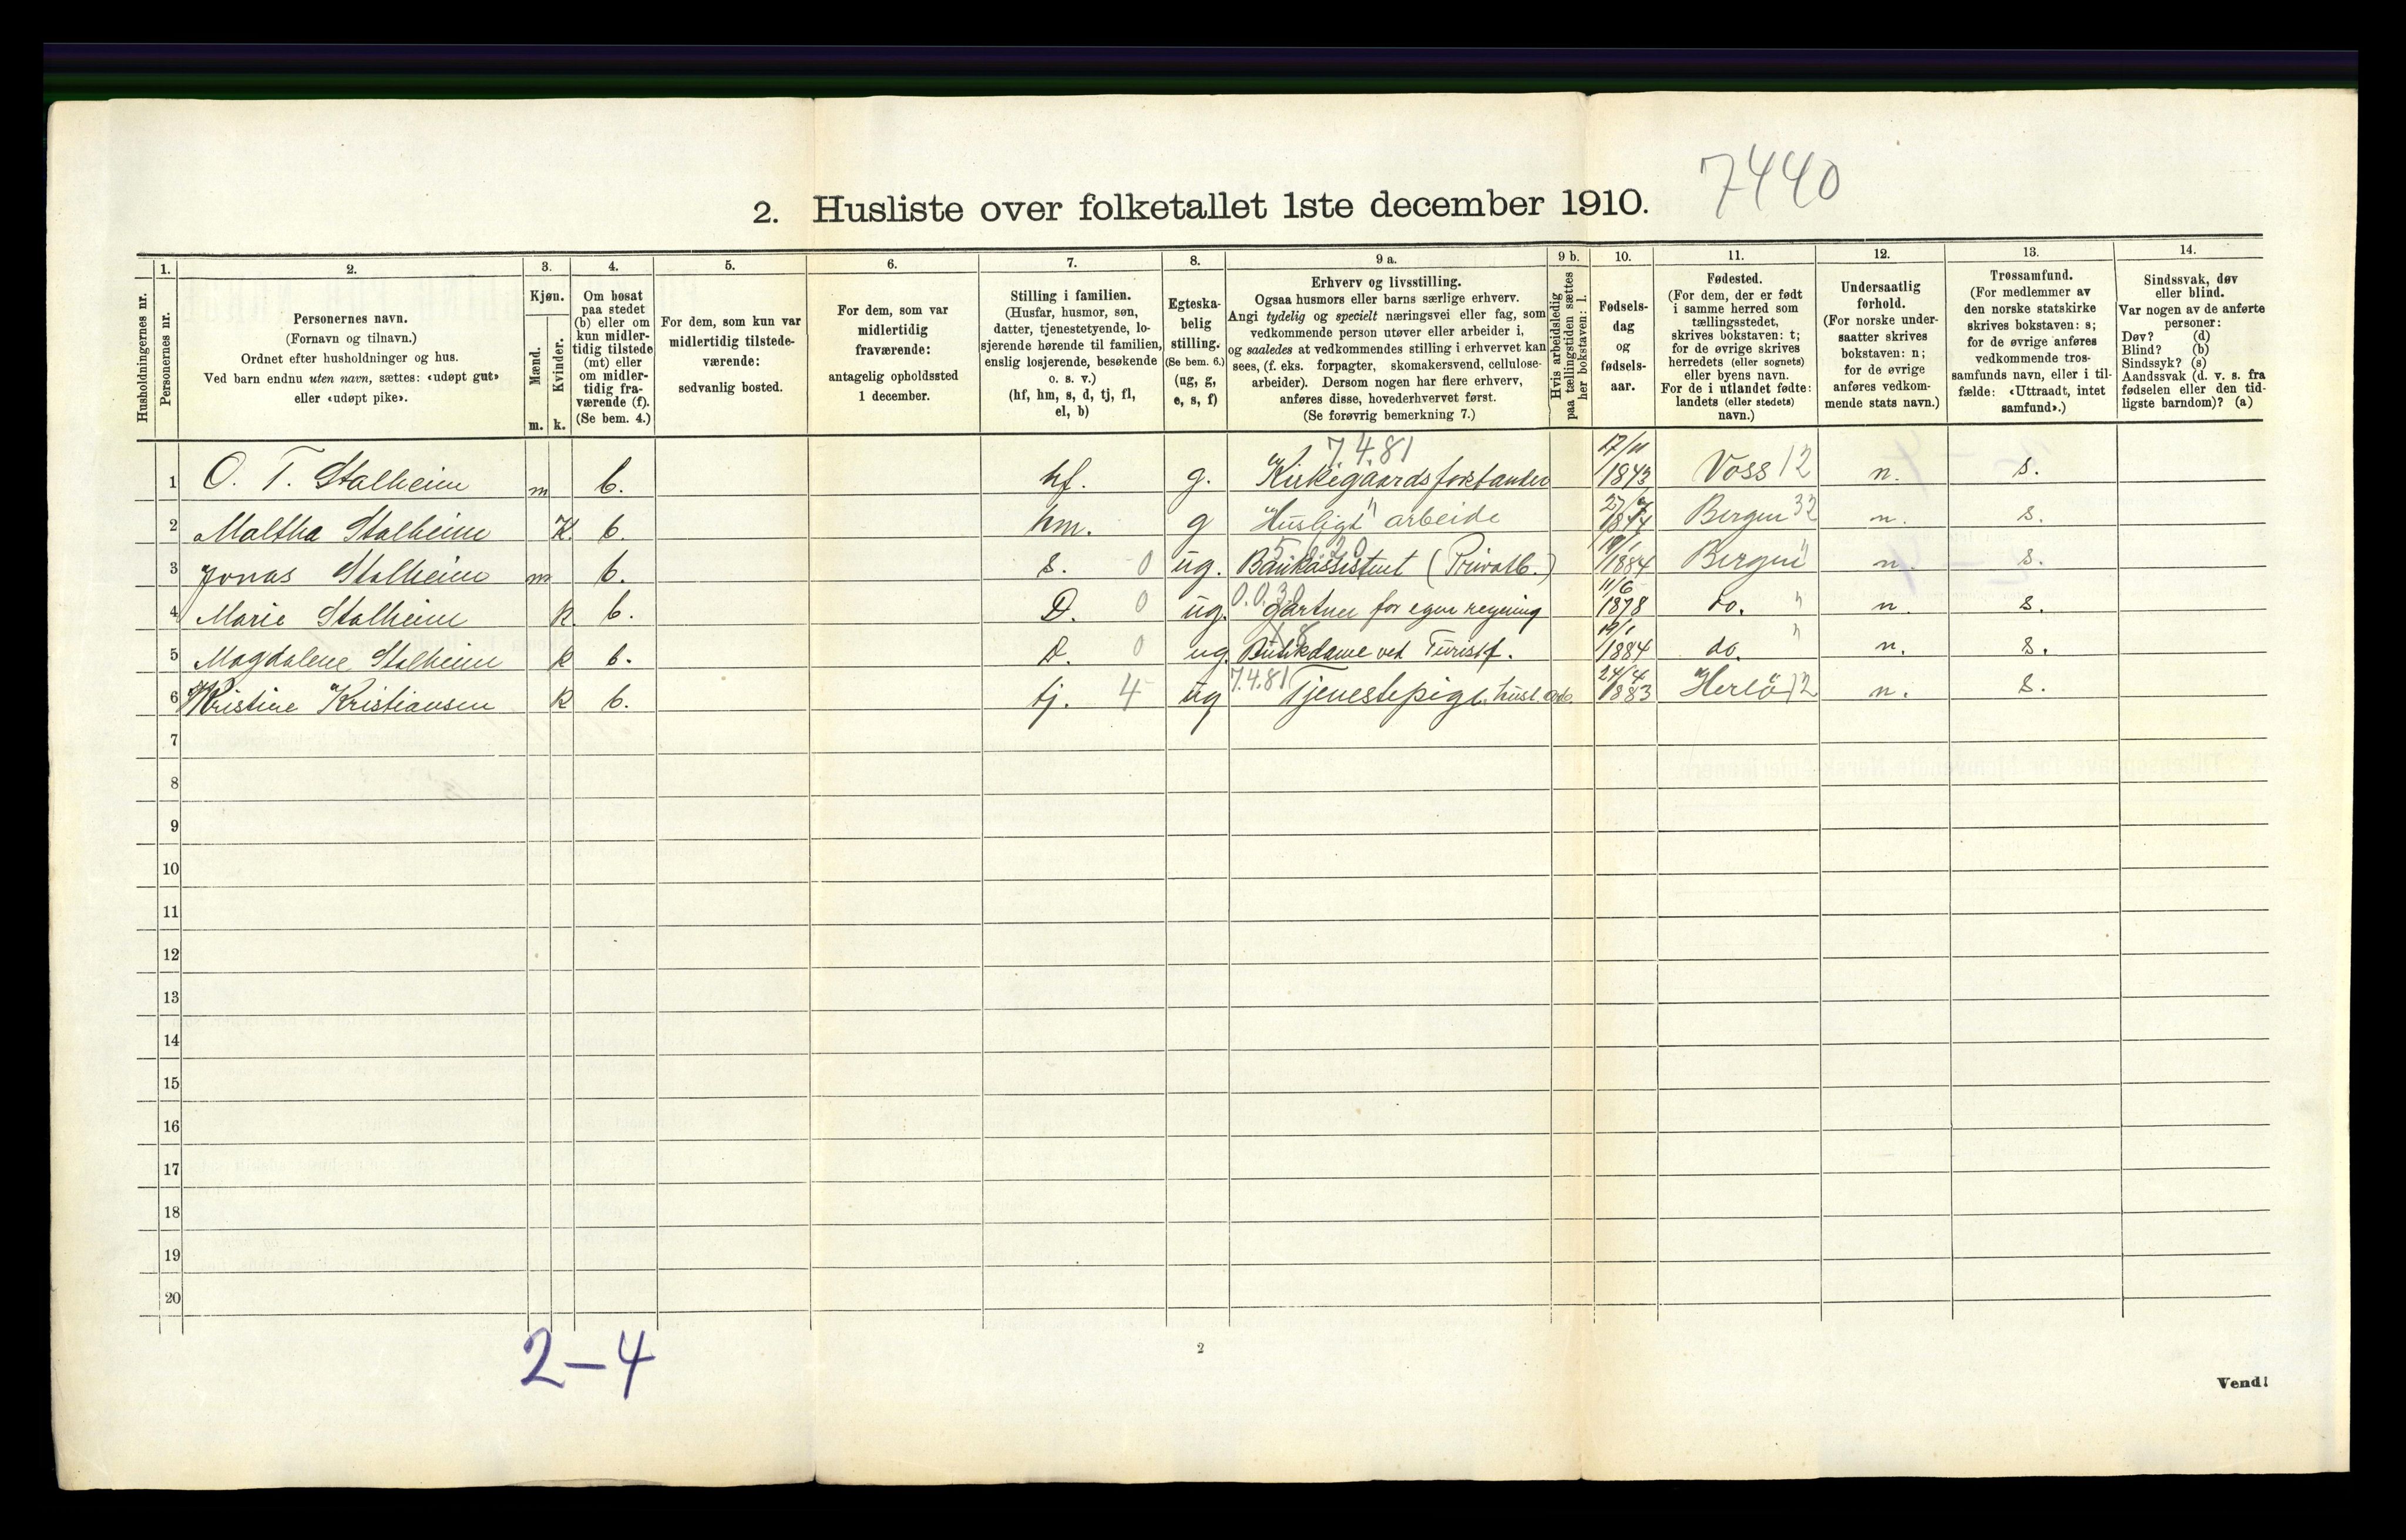 7440
2. Husliste over folketallet 1ste december 1910.
Husholdningernes nr.
1.
Personernes nr.
2.
Personernes navn.
(Fornavn og tilnavn.)
Ordnet efter husholdninger og hus.
Ved barn endnu uten navn, sættes: «udøpt gut»
eller «udøpt pike».
3.
Kjøn.
Mænd.
Kvinder.
m. k.
4.
Om bosat
paa stedet
(b) eller om
kun midler-
tidig tilstede
(mt) eller
om midler-
tidig fra-
værende (f).
(Se bem. 4.)
5.
For dem, som kun var
midlertidig tilstede-
værende:
sedvanlig bosted.
6.
For dem, som var
midlertidig
fraværende:
antagelig opholdssted
1 december.
7.
Stilling i familien.
(Husfar, husmor, søn,
datter, tjenestetyende, lo-
sjerende hørende til familien,
enslig losjerende, besøkende
o. s. v.)
(hf, hm, s, d, tj, fl,
el, b)
8.
Egteska-
belig
stilling.
(Se bem. 6.)
(ug, g,
e, s, f)
9 a.
Erhverv og livsstilling.
Ogsaa husmors eller barns særlige erhverv.
Angi tydelig og specielt næringsvei eller fag, som
vedkommende person utøver eller arbeider i,
og saaledes at vedkommendes stilling i erhvervet kan
sees, (f. eks. forpagter, skomakersvend, cellulose-
arbeider). Dersom nogen har flere erhverv,
anføres disse, hovederhvervet først.
(Se forøvrig bemerkning 7.)
9 b.
Hvis arbeidsledig
paa tællingstiden sættes
her bokstaven: l.
10.
Fødsels-
dag
og
fødsels-
aar.
11.
Fødested.
(For dem, der er født
i samme herred som
tællingsstedet,
skrives bokstaven: t;
for de øvrige skrives
herredets (eller sognets)
eller byens navn.
For de i utlandet fødte:
landets (eller stedets)
navn.)
12.
Undersaatlig
forhold.
(For norske under-
saatter skrives
bokstaven: n;
for de øvrige
anføres vedkom-
mende stats navn.)
13.
Trossamfund.
(For medlemmer av
den norske statskirke
skrives bokstaven: s;
for de øvrige anføres
vedkommende tros-
samfunds navn, eller i til-
fælde: «Uttraadt, intet
samfund».)
14.
Sindssvak, døv
eller blind.
Var nogen av de anførte
personer:
Døv? (d)
Blind? (b)
Sindssyk? (s)
Aandssvak (d. v. s. fra
fødselen eller den tid-
ligste barndom)? (a)
7.4.81
1 O. T. Stalheim m b. hf. g. Kirkegaardsforstander 17/11 1843 Voss 12 n. s.
2 Maltha Stalheim K b. hm. g Husligt " arbeide 27/7 Bergen 32 n. s.
3 Jonas Stalheim m b. s. 0 ug. Bankassistent (Privatb.) 19/1 1884 Bergen " n. s.
4 Marie Stalheim k b. D. 0 ug. 0.0.30 Gartner for egen regning 11/6 1878 do. " n. s.
5 Magdalene Stalheim k b. D. 0 ug. Butikdame ved Turistf. 19/1 1884 do. " n. s.
6 Kristine Kristiansen k b. tj. 4 ug 7.4.81 Tjenestepige husl. arb. 24/4 1883 Herlö 12 n. s.
7
8
9
10
11
12
13
14
15
16
17
18
19
20
2-4
2
Vend!